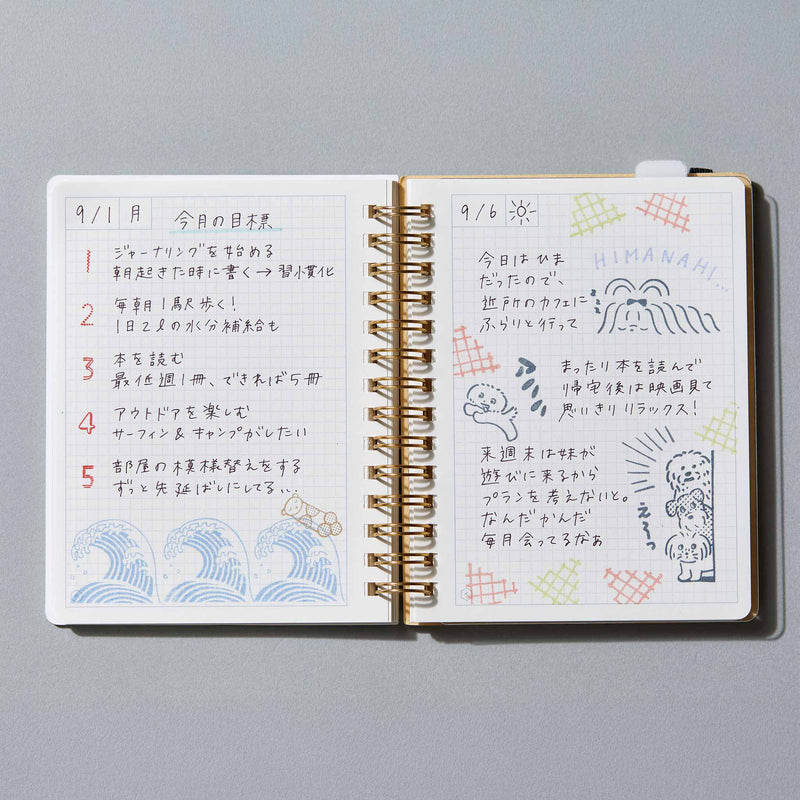 9/1 月
今月の目標
1
ジャーナリングを始める
朝起きた時に書く→習慣化
2
毎朝1駅歩く!
1日2ℓの水分補給も
3
本を読む
最低週1冊、できれば5冊
4
アウトドアを楽しむ
サーフィン&キャンプがしたい
5
部屋の模様替えをする
ずっと先延ばしにしてる...
9/6
今日はひま
だったので、
近所のカフェに
ふらりと行って
HIMANAHI...
zzz
まったり本を読んで
帰宅後は映画見て
思いきりリラックス!
来週末は妹が
遊びに来るから
プランを考えないと。
なんだかんだ
毎月会ってるなぁ
えーっ